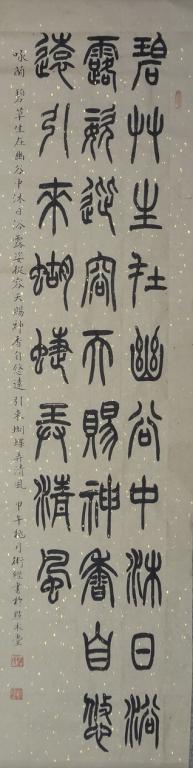 碧艸生在幽谷中沐日浴
露姿從容天賜神香自悠
遠引來蝴蝶弄清風
咏蘭 碧草生在幽谷中沐日浴露姿從容天賜神香自悠遠引來蝴蝶弄清風 甲午桃月衛經書於